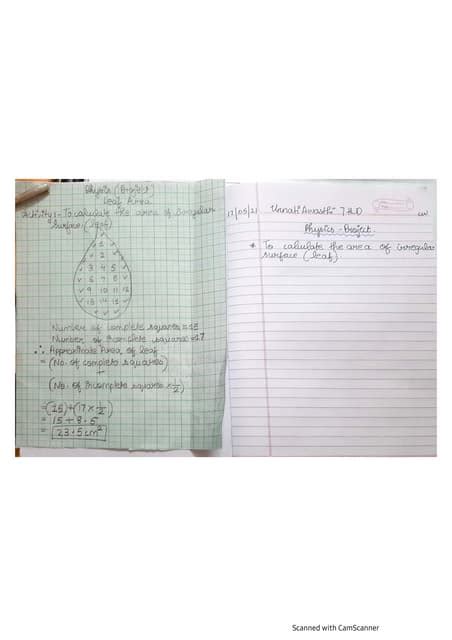 Physics (Project)
Leaf Area
Activity:- To calculate the area of Irregular
surface (leaf)
1
2
3 4 5
6 7 8
9 10 11 12
13 14 15
Number of complete squares = 15
Number of Incomplete squares = 17
∴ Approximate Area of leaf
= (No. of complete squares)
+
(No. of Incomplete squares × 1/2)
= (15) + (17 × 1/2)
= 15 + 8.5
= 23.5 cm²
17/05/21 Unnati Awasthi 7th D CW
Physics - Project.
* To calculate the area of irregular
surface (leaf)
Scanned with CamScanner